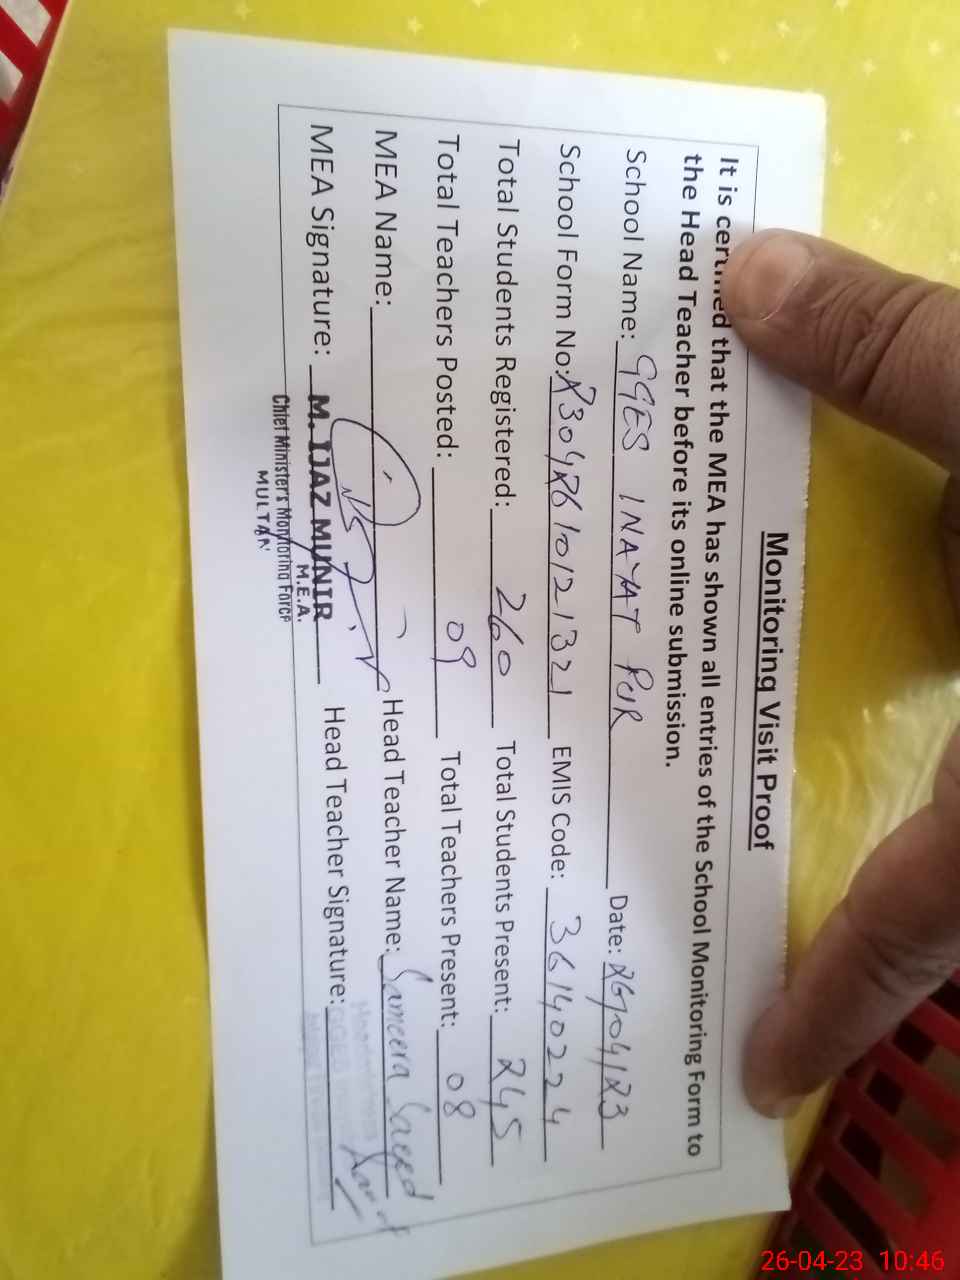 Monitoring Visit Proof
It is certified that the MEA has shown all entries of the School Monitoring Form to
the Head Teacher before its online submission.
School Name: GGES INAYAT PUR Date: 26/04/23
School Form No: EMIS Code: 36140224
Total Students Registered: 260 Total Students Present: 245
Total Teachers Posted: 09 Total Teachers Present: 08
MEA Name: Head Teacher Name: Sameera Saeed
MEA Signature: M. IJAZ MUNIR Head Teacher Signature:
M.E.A.
Chief Minister's Monitoring Force
MULTAN
26-04-23 10:46